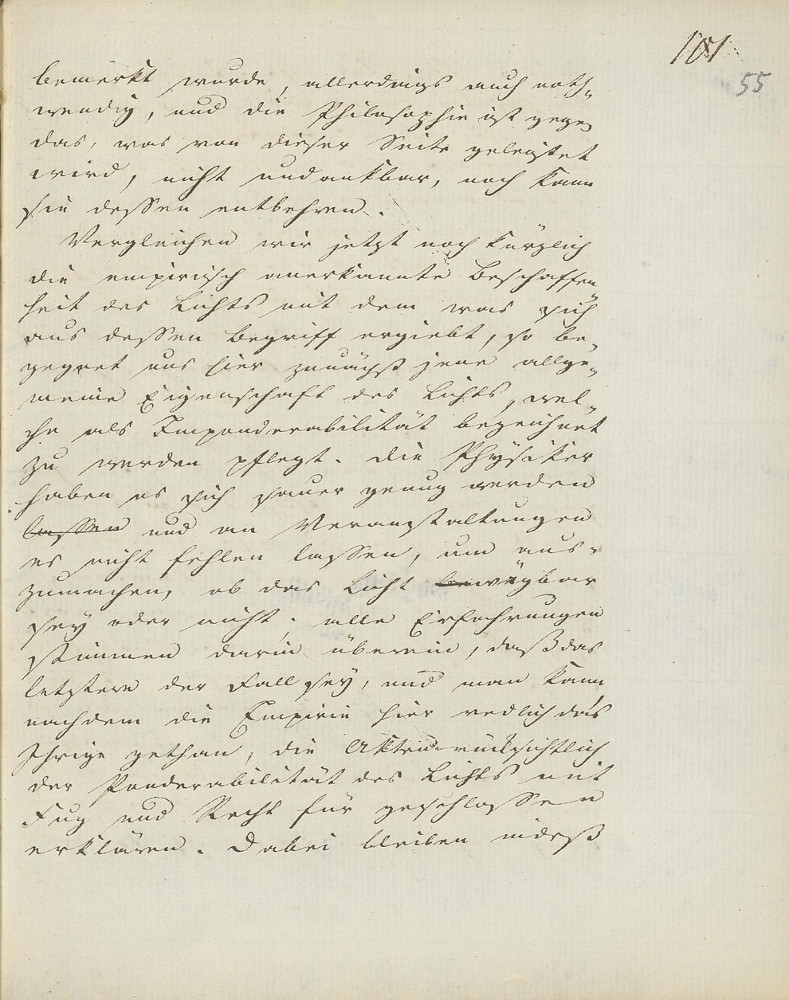 101
55
bemerkt wurde, allerdings auch noth-
wendig, und die Philosophie ist gegen
das, was von dieser Seite geleistet
wird, nicht undankbar, noch kann
sie dessen entbehren.
Vergleichen wir jetzt noch kürzlich
die empirisch anerkannte Beschaffen
heit des Lichts mit dem was sich
aus dessen Begriff ergiebt, so be-
gegnet uns hier zunächst jene allge-
meine Eigenschaft des Lichts, wel-
che als Imponderabilität bezeichnet
zu werden pflegt. Die Physiker
haben es sich sauer genug werden
lassen und an Veranstaltungen
es nicht fehlen lassen, um aus-
zumachen, ob das Licht bewägbar
sey oder nicht. alle Erfahrungen
stimmen darin überein, daß das
letztere der Fall sey, und man kann
nachdem die Empirie hier redlich das
Ihrige gethan, die Akten rücksichtlich
der Ponderabilität des Lichts mit
Fug und Recht für geschlossen
erklären. Dabei bleiben indeß